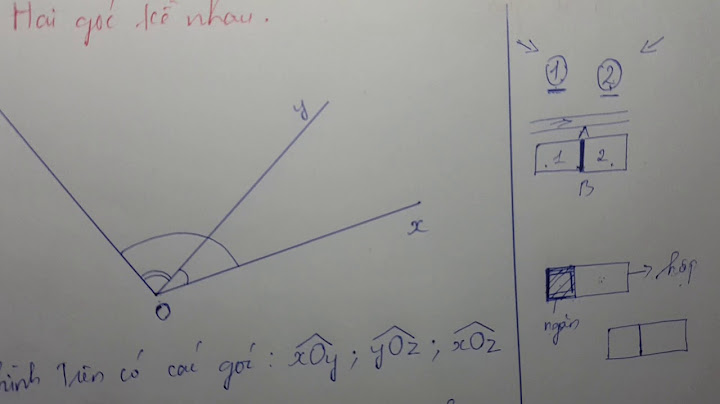 Hai góc kề nhau.
y
x
O
hình trên có các góc: xOy; yOz; xOz
1 2
1 2.
A
B
hộp
ngăn